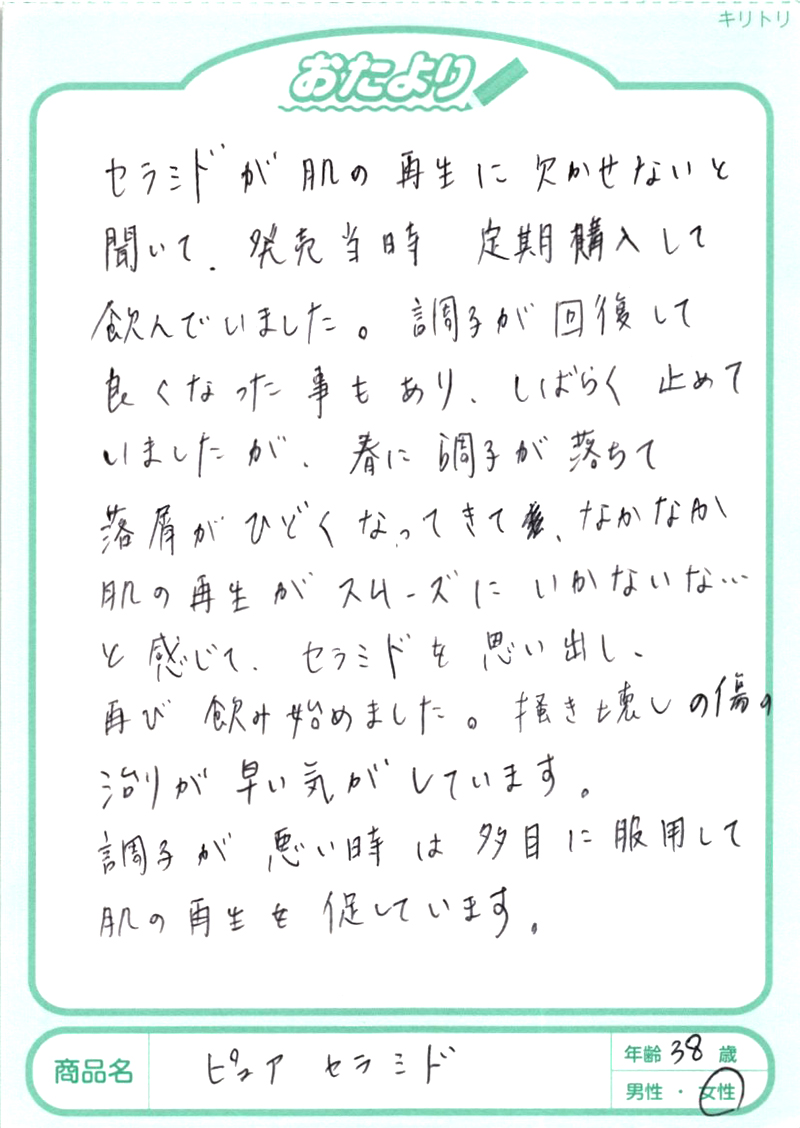 キリトリ
おたより
セラミドが肌の再生に欠かせないと
聞いて、発売当時 定期購入して
飲んでいました。調子が回復して
良くなった事もあり、しばらく止めて
いましたが、春に調子が落ちて
落屑がひどくなってきて、なかなか
肌の再生がスムーズにいかないな…
と感じて、セラミドを思い出し、
再び飲み始めました。掻き壊しの傷の
治りが早い気がしています。
調子が悪い時は多目に服用して
肌の再生を促しています。
商品名 ピュアセラミド 年齢 38 歳
男性・女性